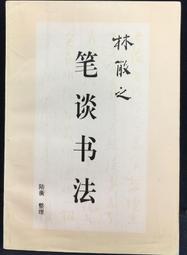 林散之
笔谈书法
陆衡 整理